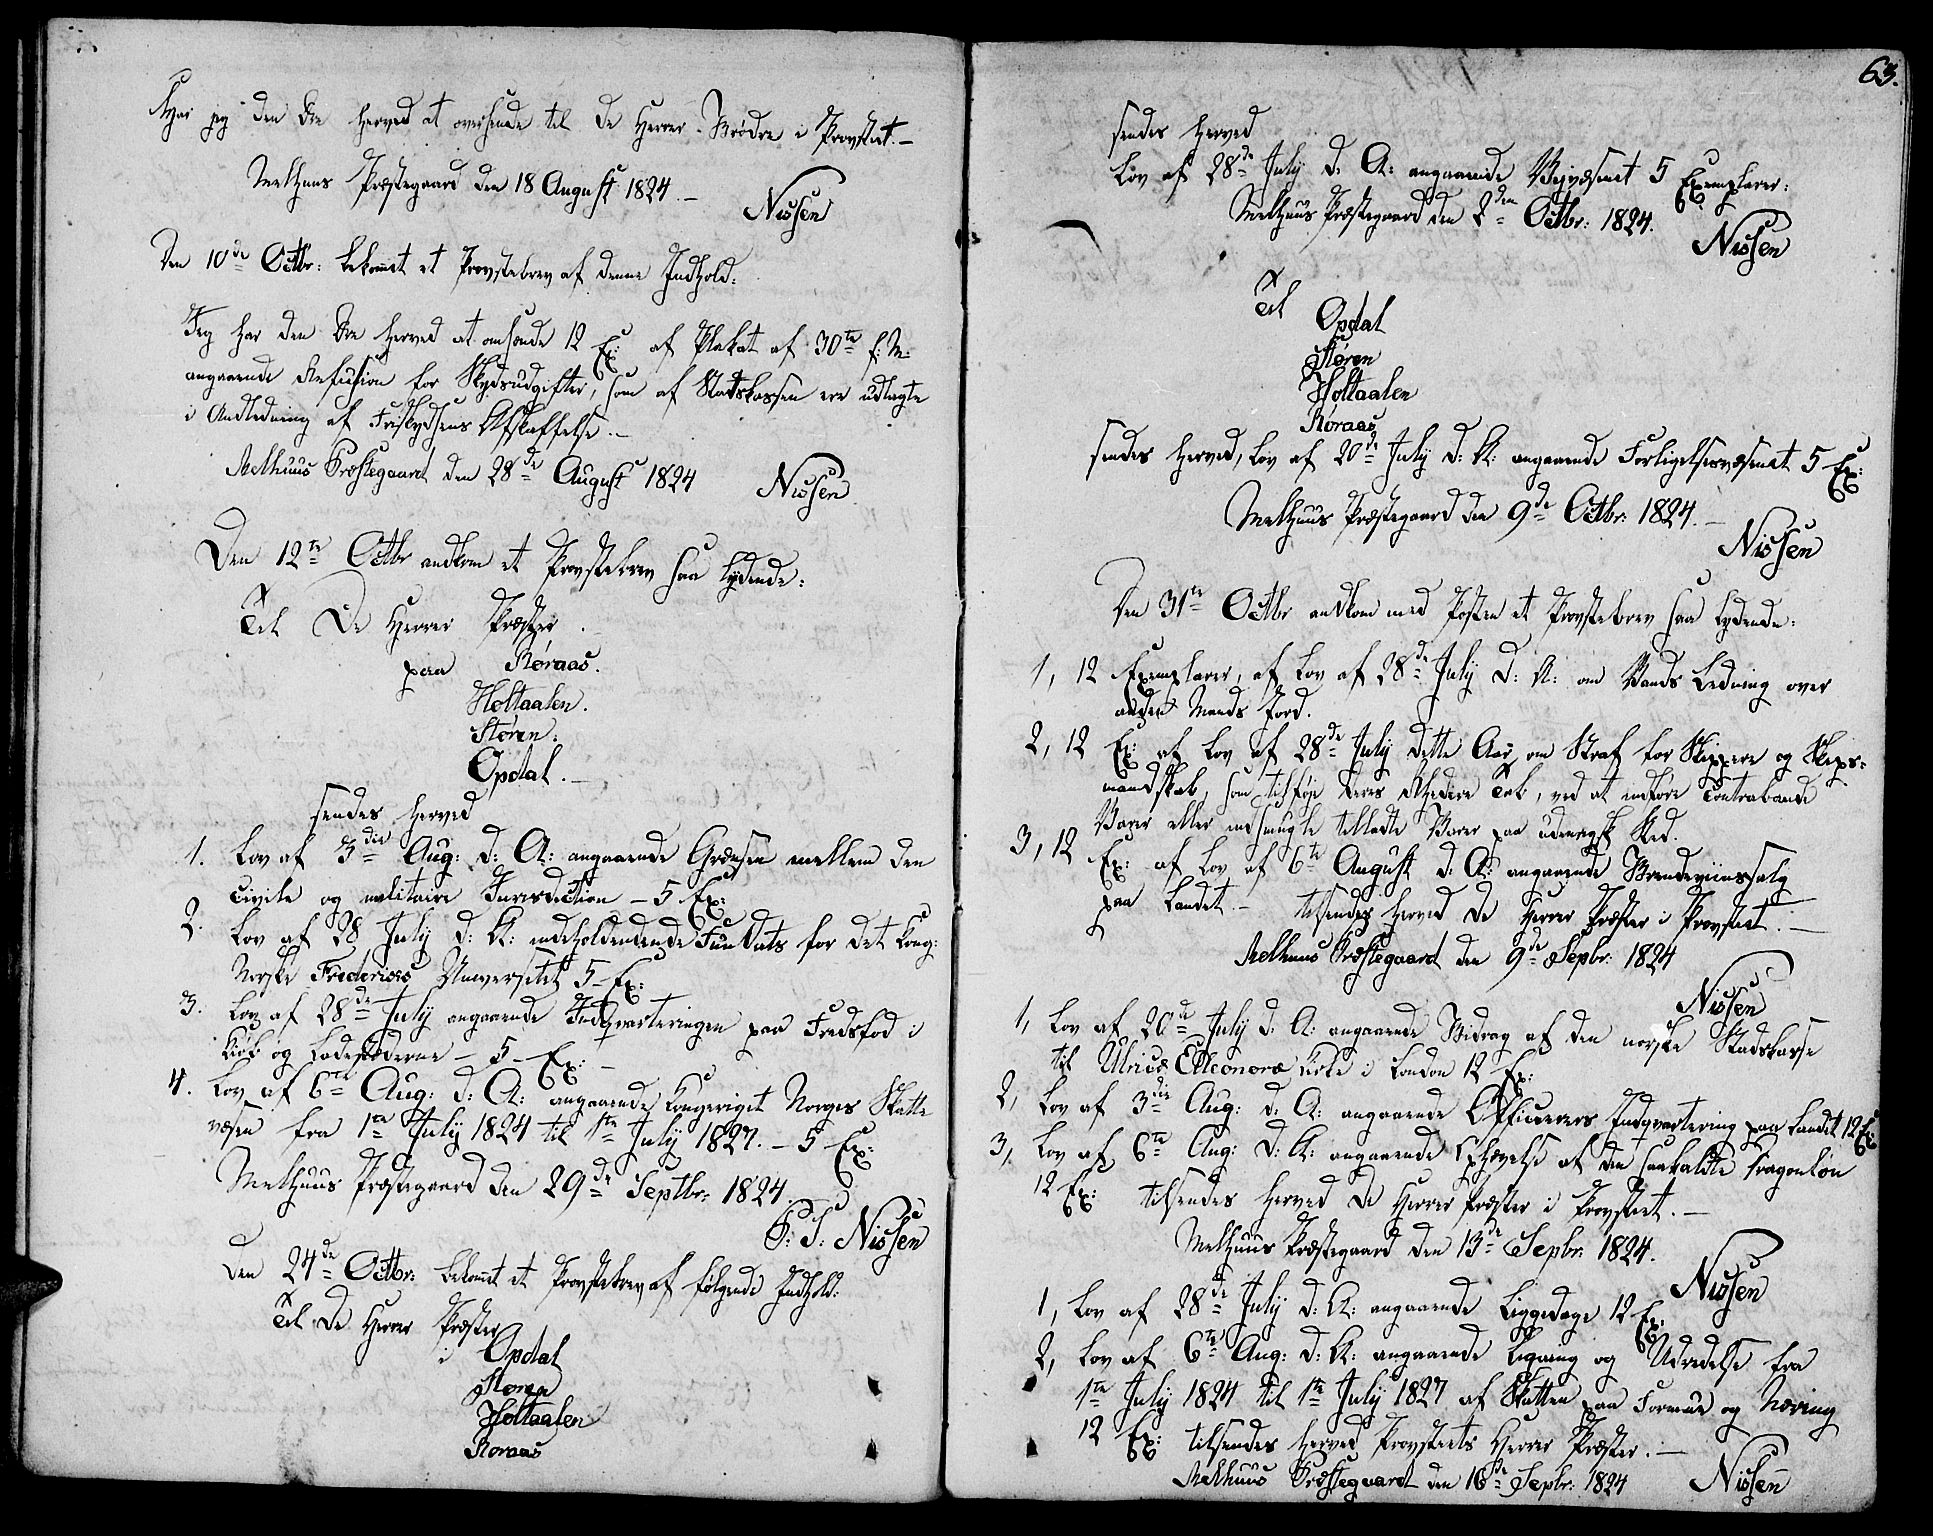 har jeg den Ære herved at oversende til de Herrer Brødre i Provstiet.—
Melhuus Præstegaard den 18 August 1824.—
Nissen
Den 10de Octbr: bekomet et Provstebrev af denne Indhold:
Jeg har den Ære herved at omsende 12 Ex: af Plakat af 30te f: M:
angaaende Refusion for Skydsudgifter, som af Statskassen ere udlagte
i Andledning af Friskydsens Afskaffelse.—
Melhuus Præstegaard den 28de August 1824
Nissen
Den 12te Octbr andkom et Provstebrev saa lydende:
Til De Herrer Præster
paa Røraas.
Holtaalen.
Støren.
Opdal.—
sendes herved
1. Lov af 3die Aug: d: A: angaaende Grændsen mellem den
civile og militaire Jurisdiction — 5 Ex:
2. Lov af 28 July d: A: indeholdendende Fundats for det kong:
Norske Frederics Universitet 5 Ex:
3. Lov af 28de July angaaende Indqvarteringen paa Fredsfod i
Kiøb og Ladestæderne — 5 — Ex: —
4. Lov af 6te Aug: d: A: angaaende Kongeriget Norges Skatte
væsen fra 1te July 1824 til 1te July 1827. — 5 Ex:
Melhuus Præstegaard den 29de Septbr: 1824.
Nissen
Den 24de Octbr: bekomet et Provstebrev af følgende Indhold:
Til De Herrer Præster
i Opdal
Støren
Holtaalen
Røraas
63.
sendes herved
Lov af 28de July d: A: angaaende Vejvæsenet 5 Exemplarer:
Melhuus Præstegaard den 2den Octbr: 1824.
Nissen
Til
Opdal
Støren
Holtaalen
Røraas
sendes herved, Lov af 20de July d: A: angaaende Forligelsesvæsenet 5 Ex:
Melhuus Præstegaard den 9de Octbr: 1824.—
Nissen
Den 31te Octbr andkom med Posten et Provstebrev saa lydende:
1, 12 Exemplarer, af Lov af 28de July d: A: om Vands Ledning over
anden Mands Jord.
2, 12 Ex: af Lov af 28de July dette Aar, om Straf for Skippere og Skibs-
mandskab, som tilføje deres Rhedere Tab, ved at indføre Contrabande
Varer eller indsmugle tilladte Varer paa udenrigsk Sted.
3, 12 Ex: af Lov af 6te August d: A: angaaende Brændeviinssalg
paa Landet.— tilsendes herved de Herrer Præster i Provstiet.—
Melhuus Præstegaard den 9de Sepbr: 1824
Nissen
1, Lov af 20de July d: A: angaaende Bidrag af den norske Stadskasse
til Ulrica Eleonora Kirke i London 12 Ex:
2, Lov af 3die Aug: d: A: angaaende Officerers Indqvartering paa Landet 12 Ex:
3, Lov af 6te Aug: d: A: angaaende Ophævelse af den saakaldte Dragonløn
12 Ex: tilsendes herved de Herrer Præster i Provstiet.—
Melhuus Præstegaard den 13de Sepbr: 1824.
Nissen
1, Lov af 28de July d: A: angaaende Liggedage 12 Ex:
2, Lov af 6te Aug: d: A: angaaende Ligning og Udredelse fra
1te July 1824 til 1te July 1827 af Skatten paa Formue og Næring
12 Ex: tilsendes herved Provstiets Herrer Præster.—
Melhuus Præstegaard den 16de Sepbr: 1824
Nissen